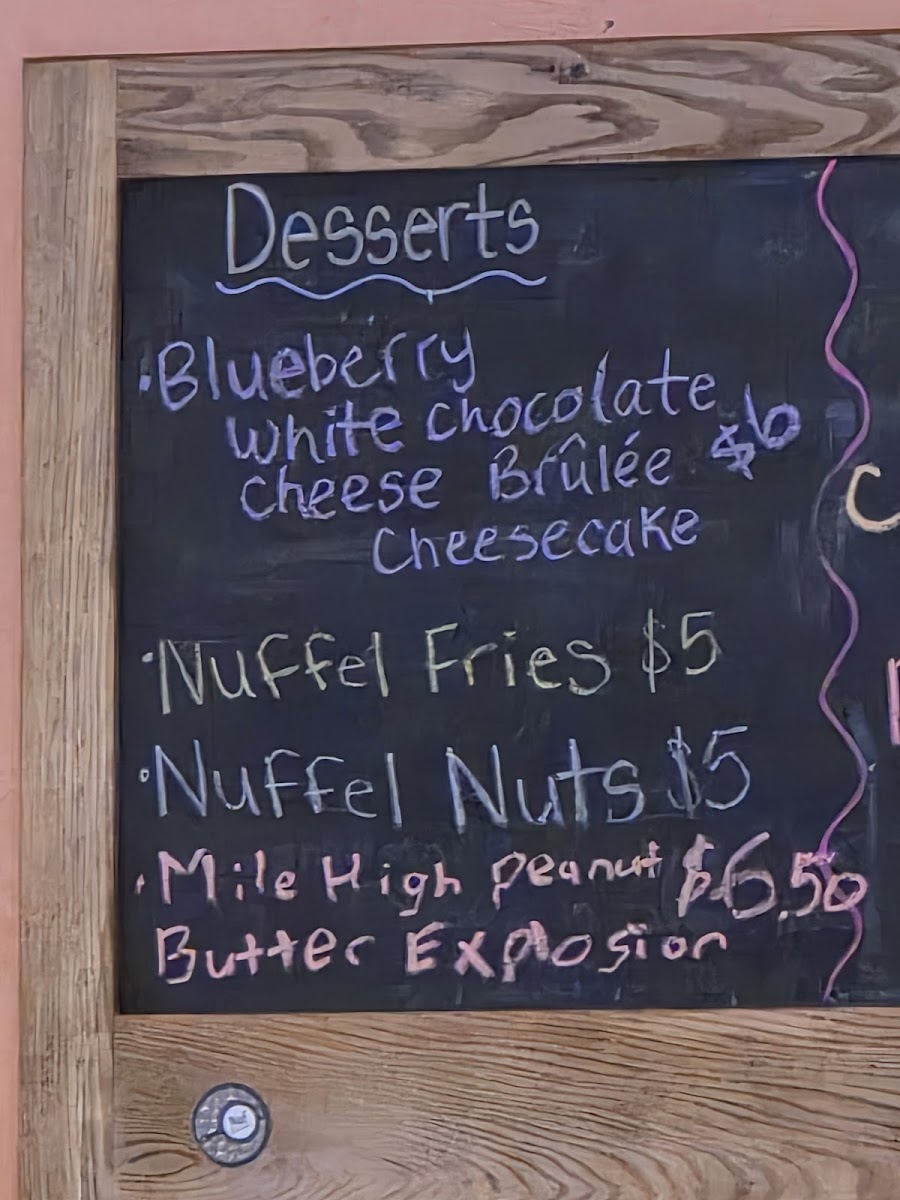 Desserts
• Blueberry
White chocolate
cheese Brûlée $6
Cheesecake
• Nuffel Fries $5
• Nuffel Nuts $5
• Mile High Peanut $6.50
Butter Explosion